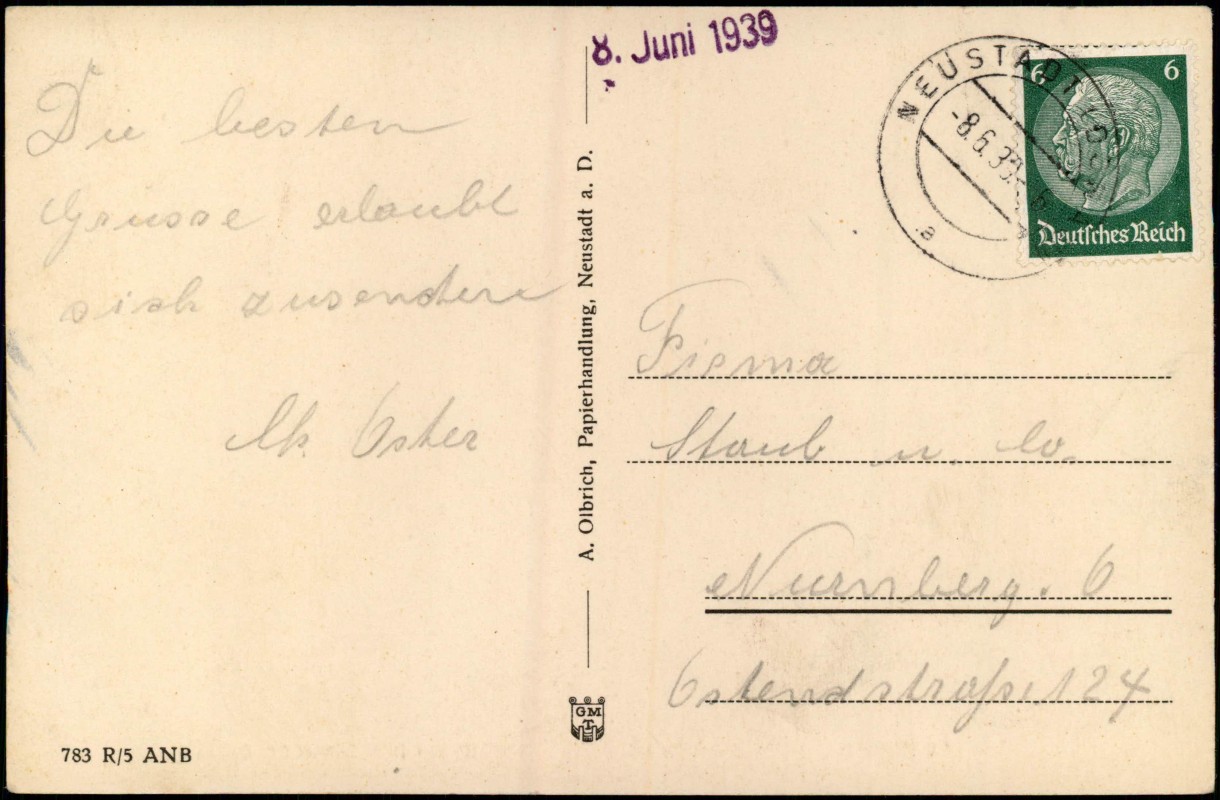 8. Juni 1939
NEUSTADT
-8.6.39
a
6 6
Deutsches Reich
Die besten
Grüsse erlaubt
sich zusenden
Oster
A. Olbrich, Papierhandlung, Neustadt a. D.
Firma
Staub u. Co.
Nürnberg. O.
Ostendstraße 124
GMT
783 R/5 ANB